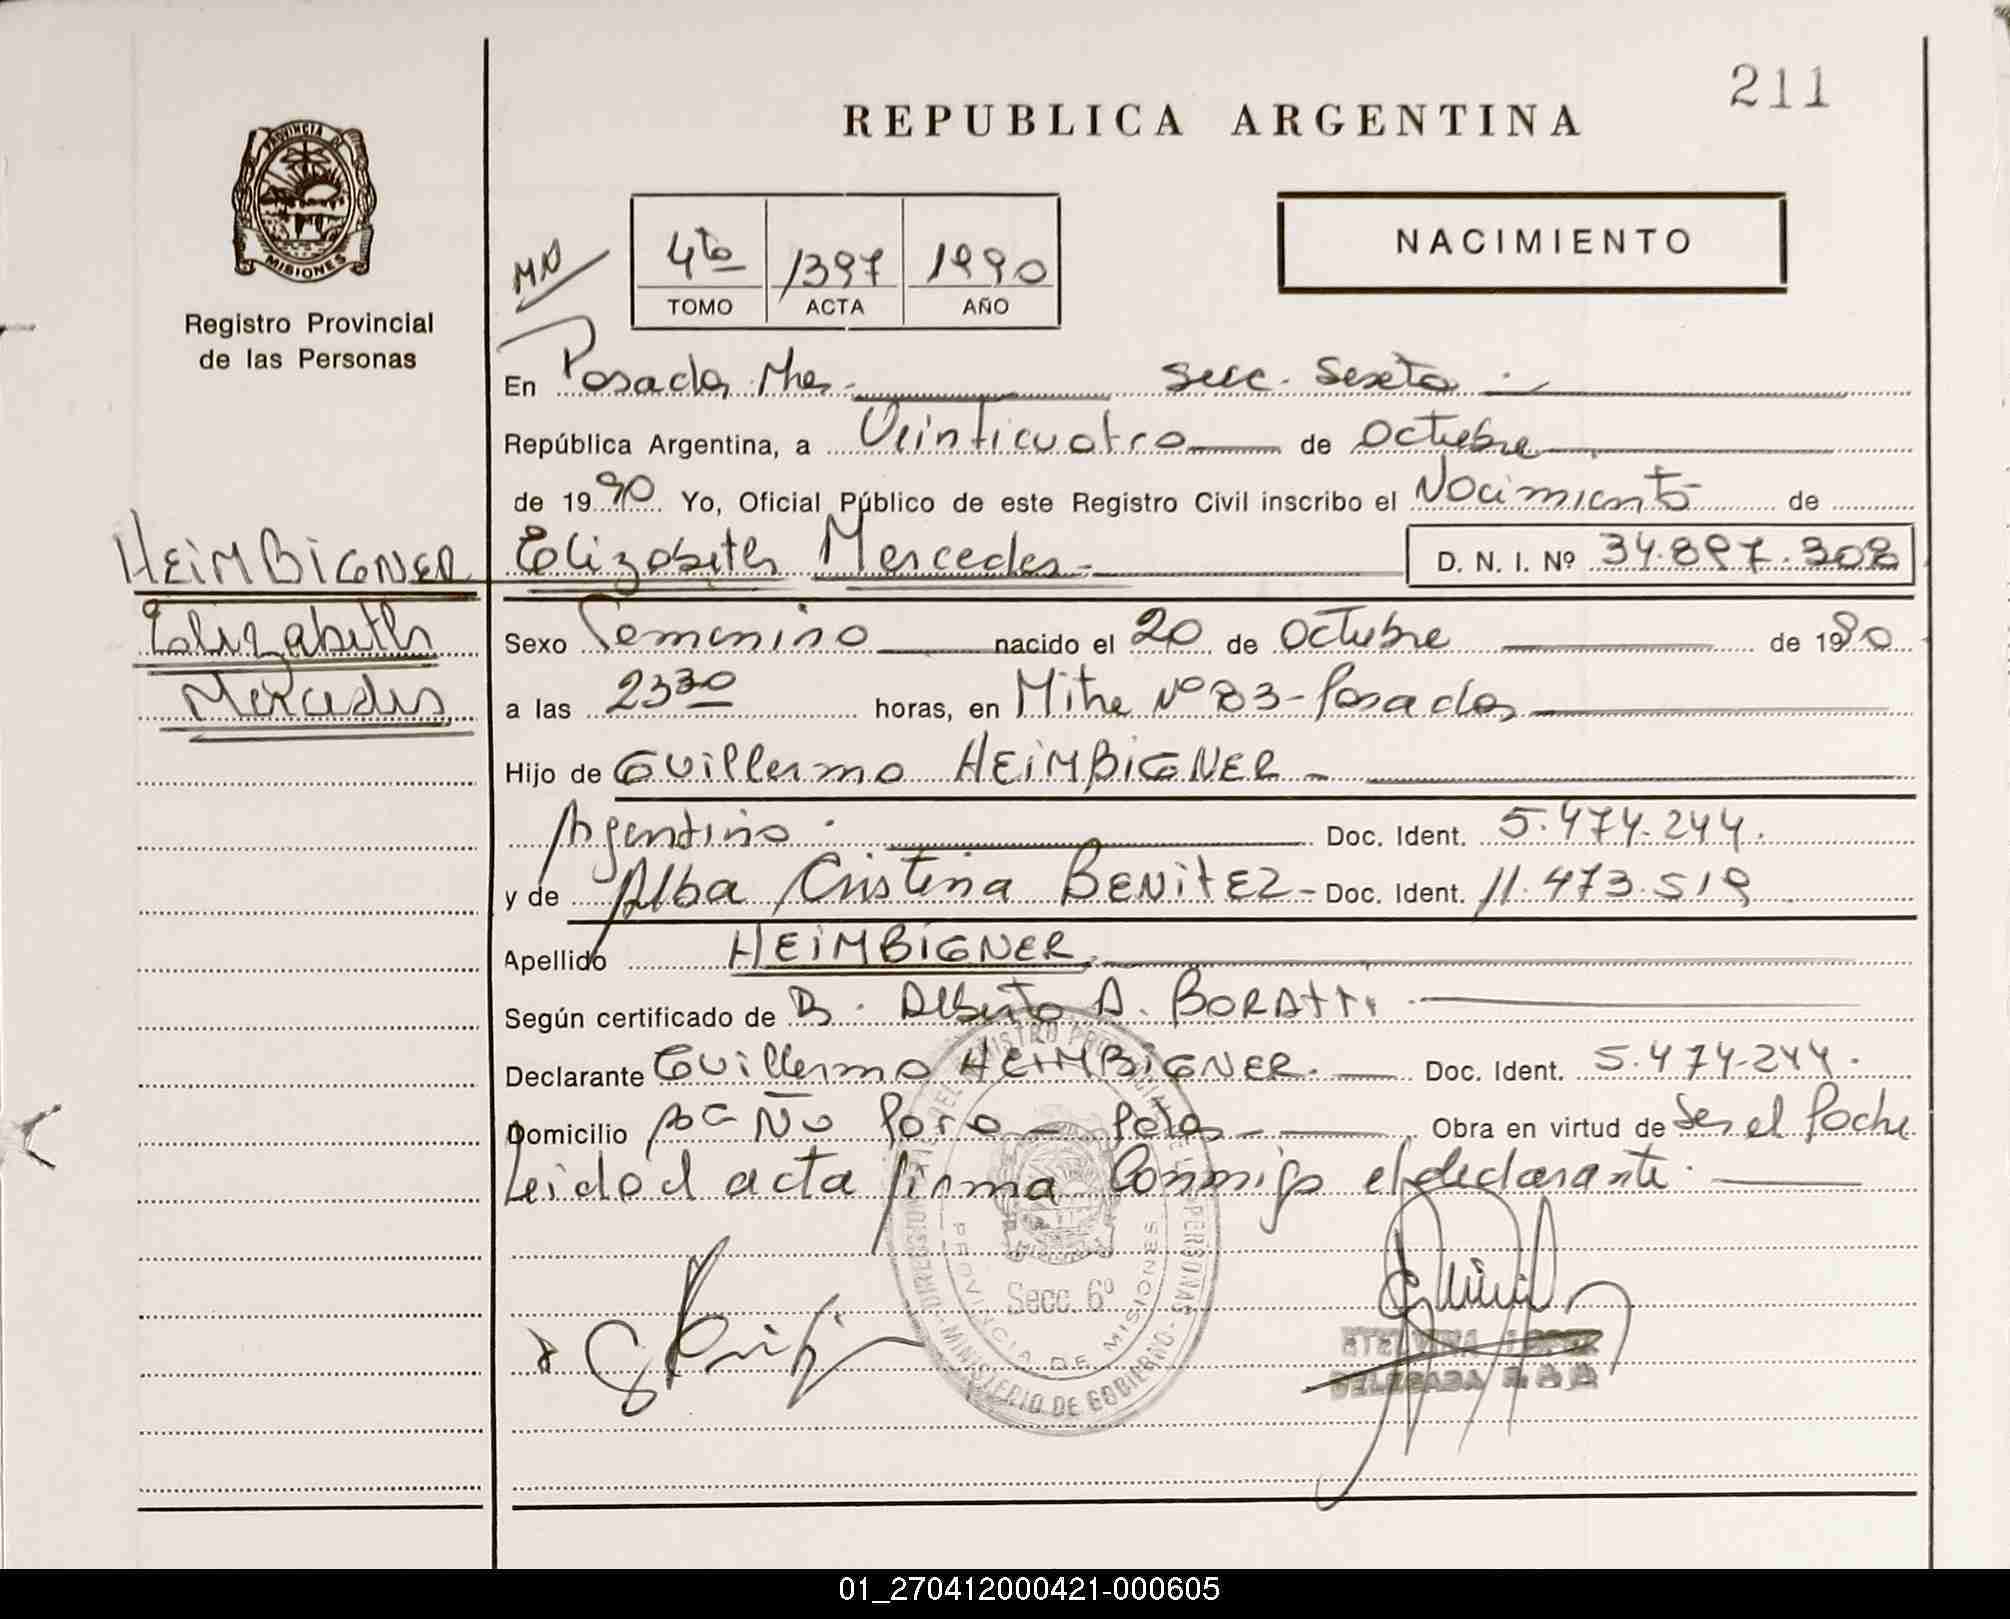 211
REPUBLICA ARGENTINA
PROVINCIA DE
MISIONES
Registro Provincial
de las Personas
4to 1397 1990
TOMO ACTA AÑO
NACIMIENTO
En Posadas Mnes. secc. Sexta
República Argentina, a Veinticuatro de Octubre
de 1990 Yo, Oficial Público de este Registro Civil inscribo el Nacimiento de
HEIMBIGNER
Elizabeth
Mercedes
Elizabeth Mercedes D. N. I. Nº 34.897.308
Sexo Femenino nacido el 20 de Octubre de 1990
a las 23 30 horas, en Mitre Nº 83 - Posadas
Hijo de Guillermo HEIMBIGNER
Argentino. Doc. Ident. 5.474.244.
y de Alba Cristina BENITEZ - Doc. Ident. 11.473.519
Apellido HEIMBIGNER.
Según certificado de D. Alberto A. BORATTI
Declarante Guillermo HEIMBIGNER. Doc. Ident. 5.474.244.
Domicilio Bº Ñu Pora Obra en virtud de Ser el Padre
Leida el acta firma Conmigo el declarante.
DIRECCION DEL REGISTRO PROVINCIAL DE LAS PERSONAS
MINISTERIO DE GOBIERNO
PROVINCIA DE MISIONES
Secc. 6º
ETELVINA LOPEZ
DELEGADA
01_270412000421-000605